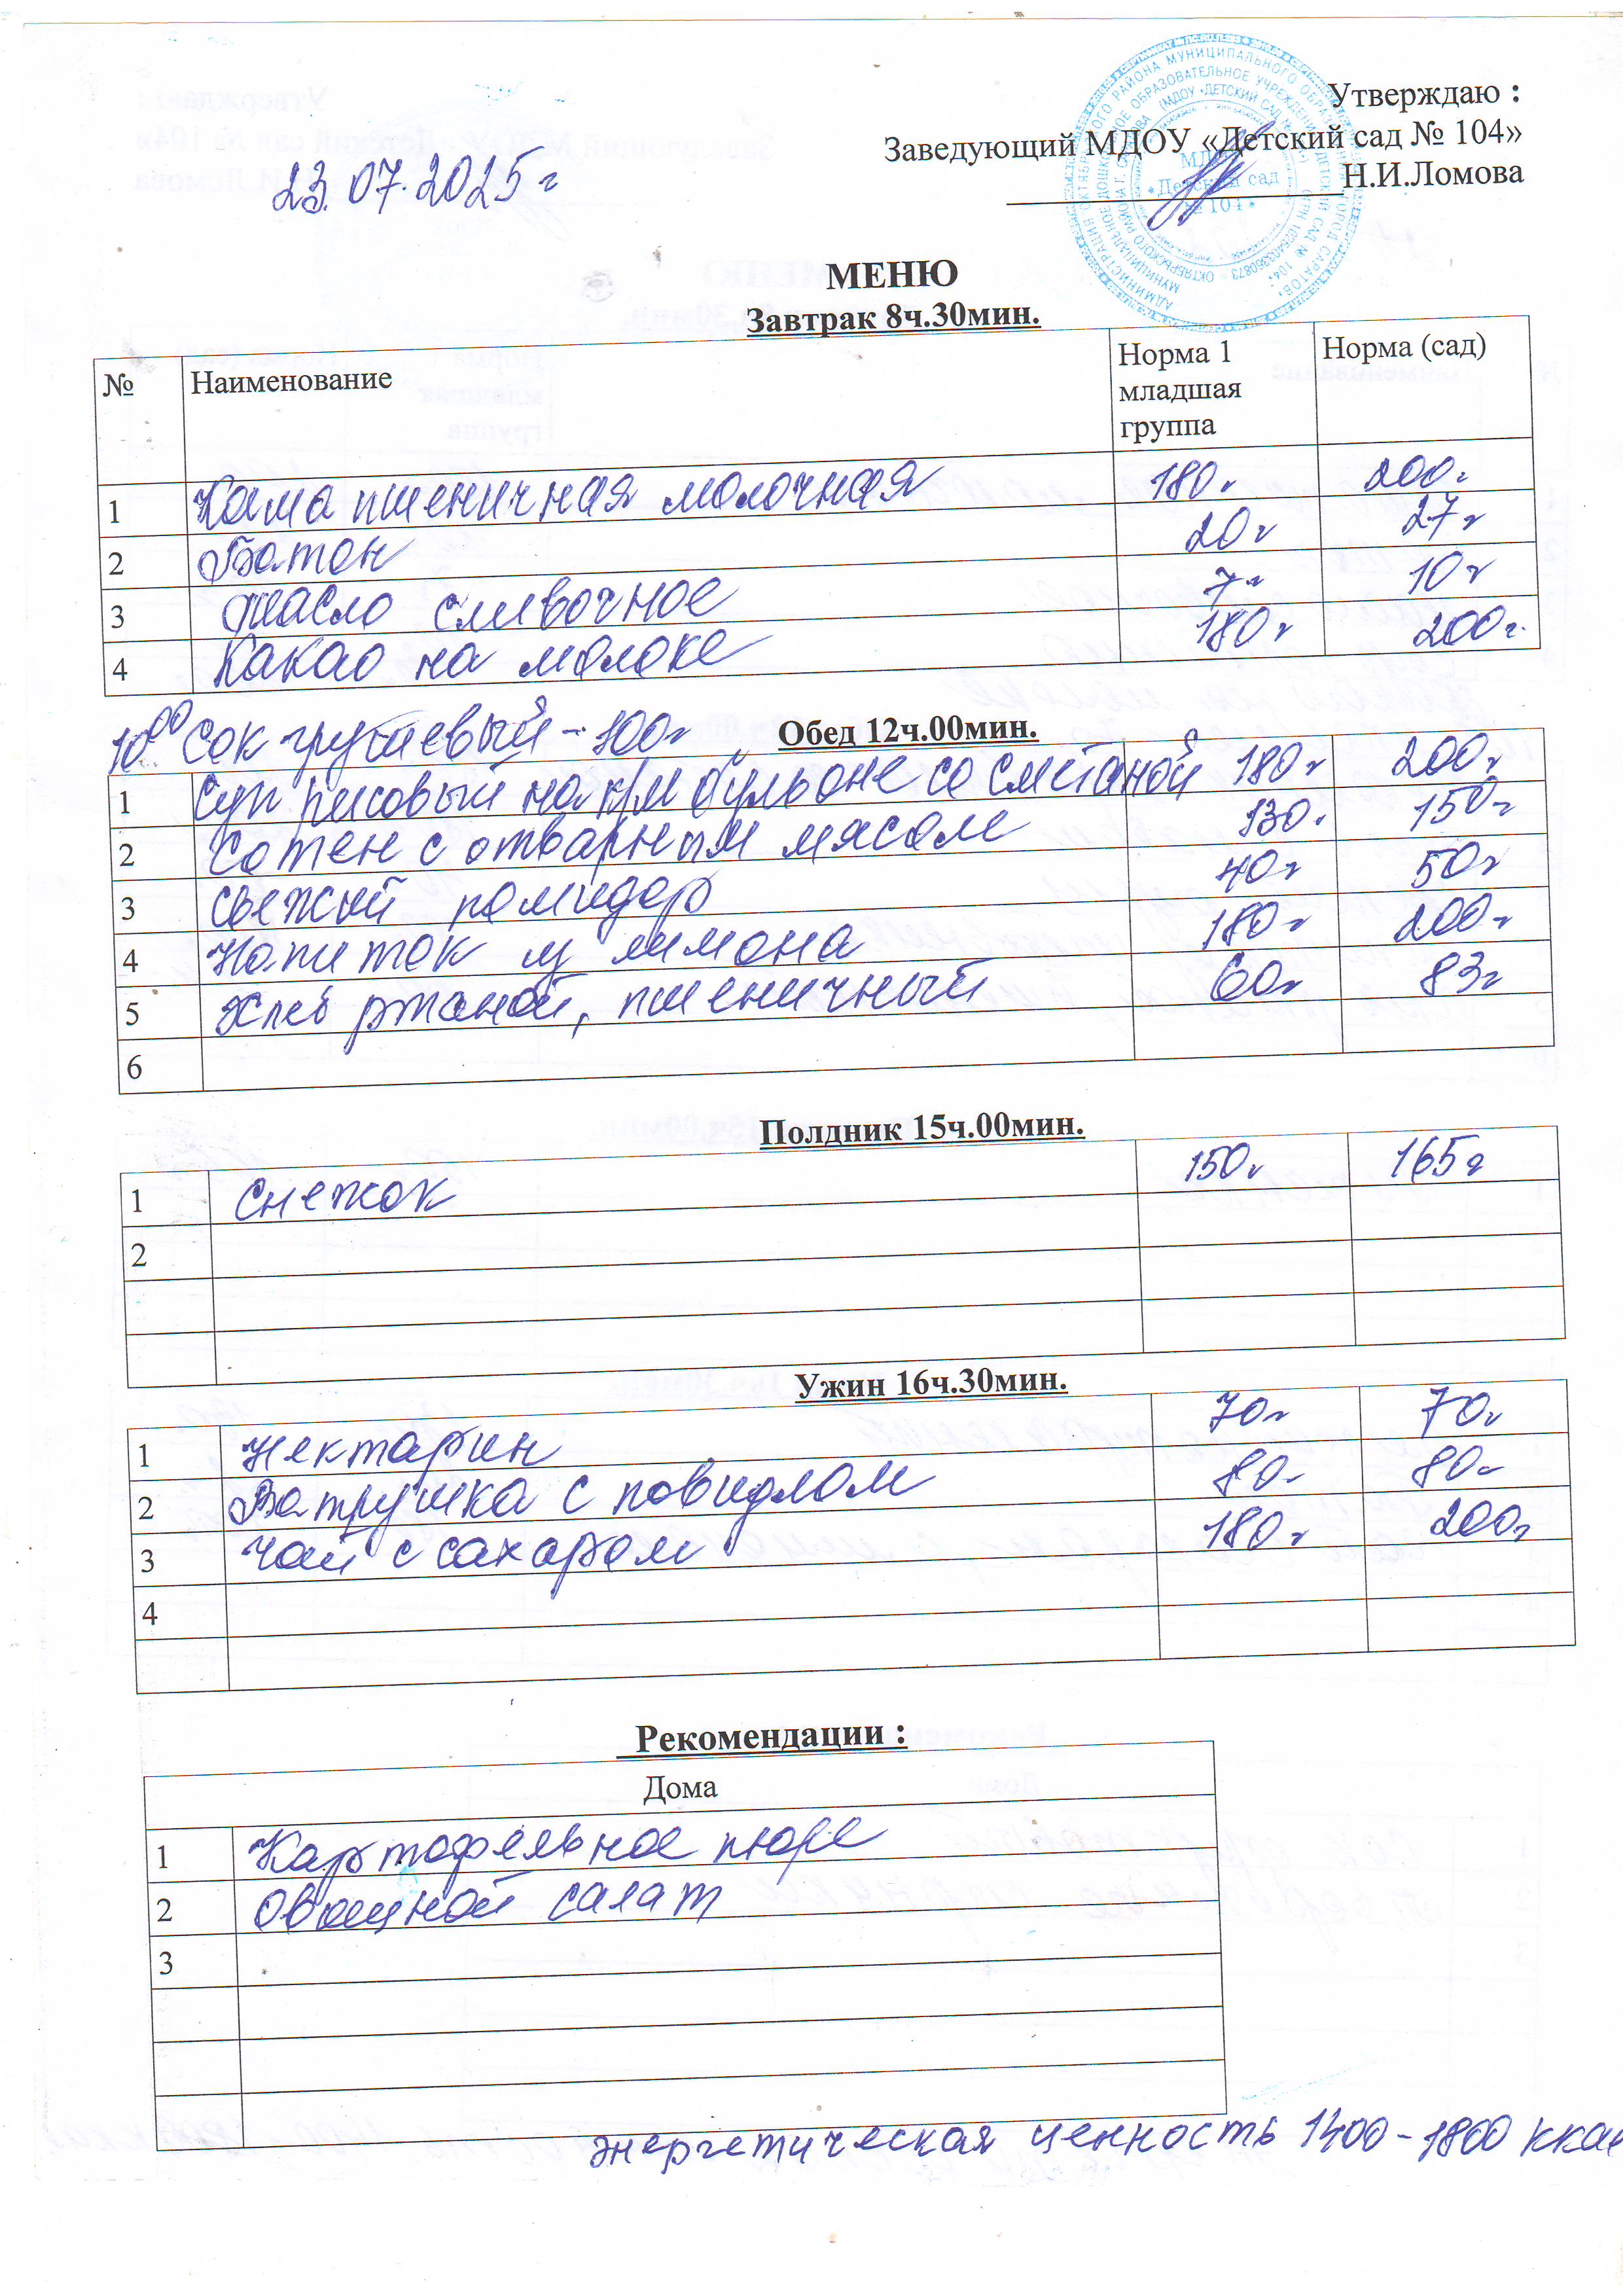 Утверждаю :
Заведующий МДОУ «Детский сад № 104»
Н.И.Ломова
МДОУ
«Детский сад
№ 104»
23.07.2025г
МЕНЮ
Завтрак 8ч.30мин.
№ Наименование Норма 1 младшая группа Норма (сад)
1 Каша пшеничная молочная 180г 200г
2 Батон 20г 27г
3 Масло сливочное 7г 10г
4 Какао на молоке 180г 200г.
10 00 Сок грушевый - 100г
Обед 12ч.00мин.
1 Суп рисовый на к/м бульоне со сметаной 180г 200г
2 с отварным мясом 130г 150г
3 свежий помидор 40г 50г
4 Напиток из лимона 180г 200г
5 Хлеб ржаной, пшеничный 60г 83г
6
Полдник 15ч.00мин.
1 Снежок 150г 165г
2
Ужин 16ч.30мин.
1 Нектарин 70г 70г
2 Ватрушка с повидлом 80г 80г
3 Чай с сахаром 180г 200г
4
Рекомендации :
Дома
1 Картофельное пюре
2 Овощной салат
3
энергетическая ценность 1400-1800 ккал